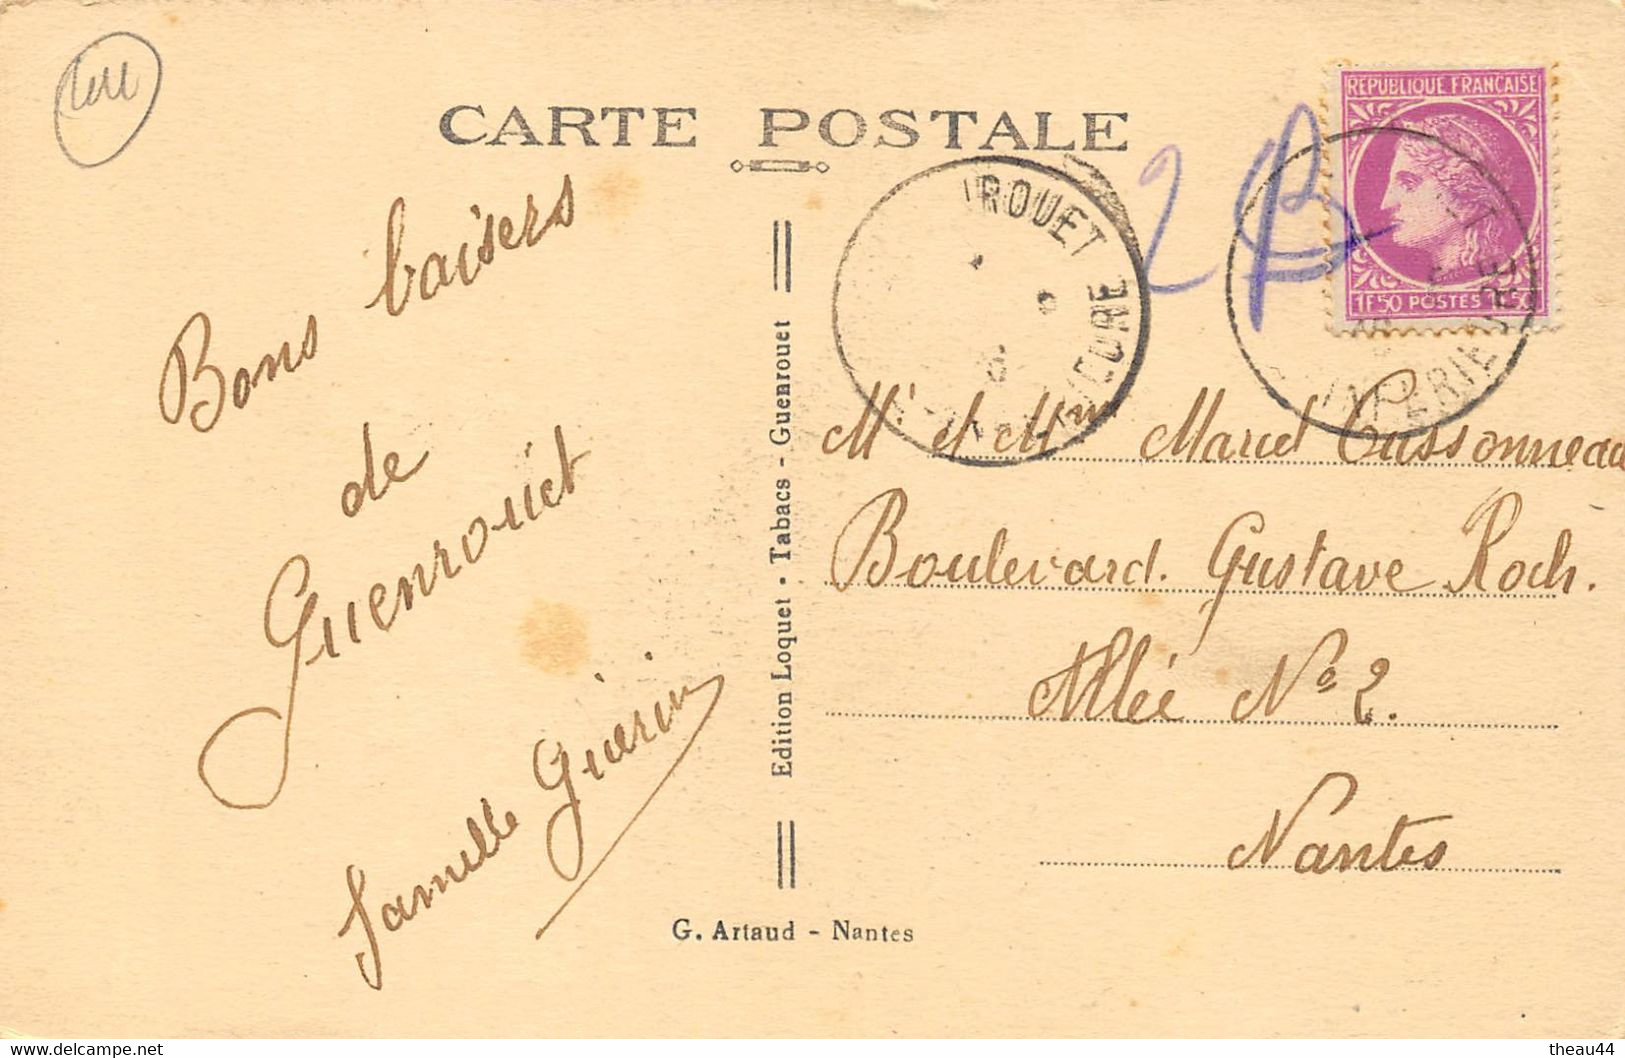 44
CARTE POSTALE
RÉPUBLIQUE FRANÇAISE
1F50 POSTES 1F50
ROUET
Bons baisers
de
Guenrouet
Famille Guérin
Edition Loquet - Tabacs - Guenrouet
Mr et Mme Marcel Cussonneau
Boulevard. Gustave Roch.
Allée No 2.
Nantes
G. Artaud - Nantes
www.delcampe.net
theau44